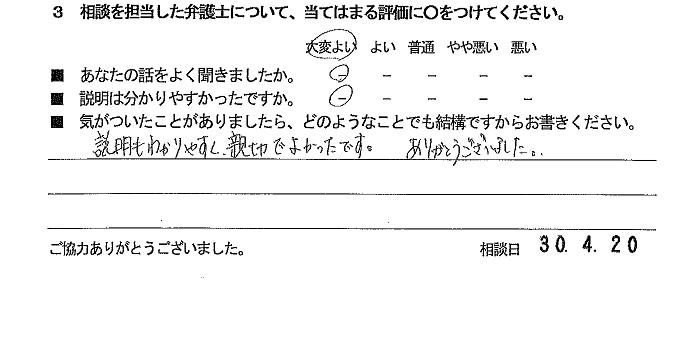 3 相談を担当した弁護士について、当てはまる評価に〇をつけてください。
大変よい よい 普通 やや悪い 悪い
■ あなたの話をよく聞きましたか。 － － － － －
■ 説明は分かりやすかったですか。 － － － － －
■ 気がついたことがありましたら、どのようなことでも結構ですからお書きください。
説明もわかりやすく、親切でよかったです。 ありがとうございました。
ご協力ありがとうございました。 相談日 30. 4. 20